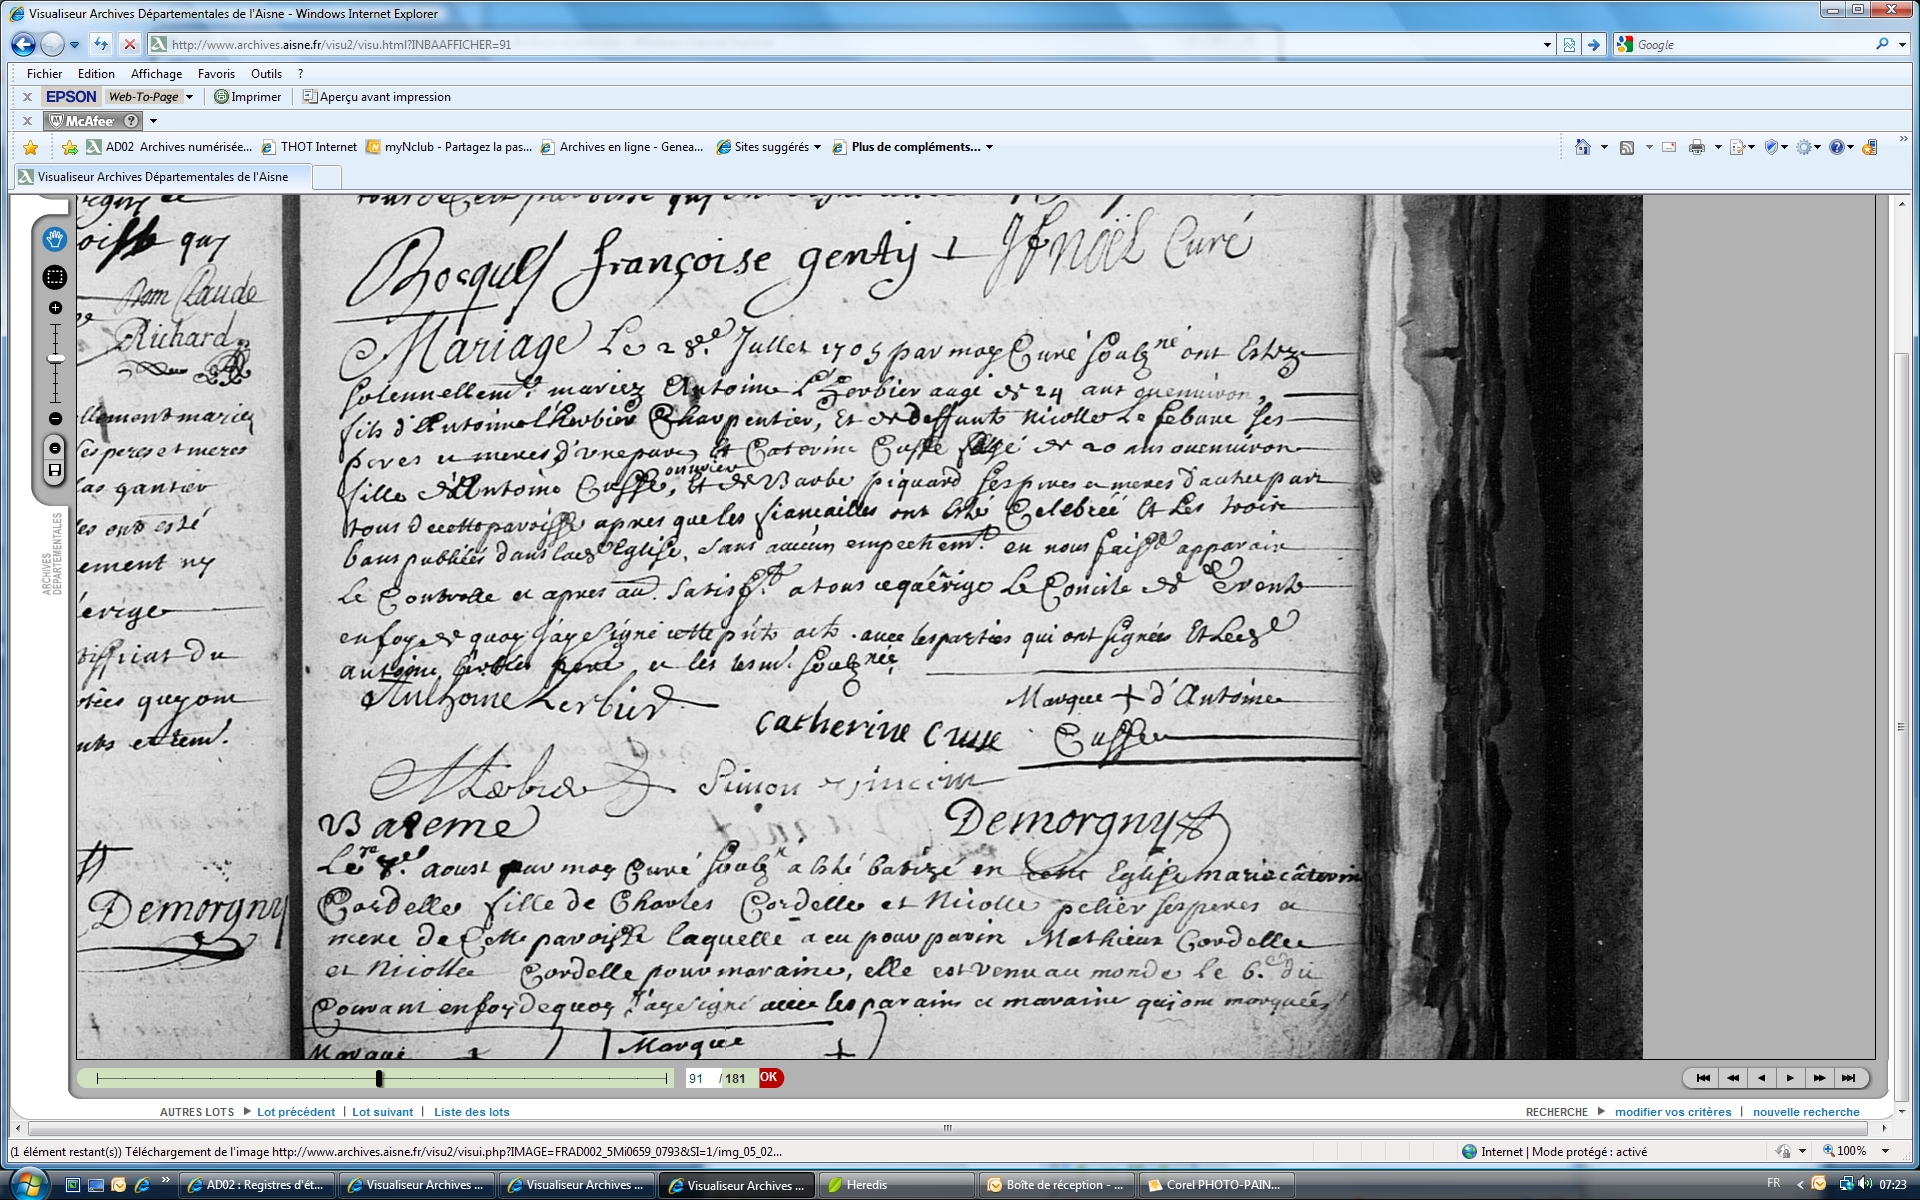 Visualiseur Archives Départementales de l'Aisne - Windows Internet Explorer
http://www.archives.aisne.fr/visu2/visu.html?INBAAFFICHER=91
Google
Fichier Edition Affichage Favoris Outils ?
x EPSON Web-To-Page Imprimer Aperçu avant impression
x McAfee ?
AD02 Archives numérisée... THOT Internet myNclub - Partagez la pas... Archives en ligne - Genea... Sites suggérés Plus de compléments...
Visualiseur Archives Départementales de l'Aisne
ARCHIVES DÉPARTEMENTALES
quy
Dom Claude
Richard
llement mariez
ses peres et meres
gantier
les ont esté
ement ny
erige
tifficat du
quy ont
et tem.
Demorgny
françoise genty + Noël Curé
Mariage Le 28.e Juillet 1705 par moy Curé soubz.né ont Estez
solennellem.t mariez Antoine L'herbier aagé de 24 ans ouenviron,
fils d'Antoine l'herbier Charpentier, et de deffunte Nicolle Le febure ses
peres et meres d'une part, et Caterine Cusse agé de 20 ans ouenviron
fille d'Antoine Cusse, ouvrier et de Barbe piquard ses peres et meres d'autre part
tous de cette paroisse apres que les fiancailles ont Esté Celebréé Et Les trois
bans publiés dans lad. Eglise. sans aucun empechem.t en nous apparoir
Le et apres satisf.t a tous ce qu'érige Le Concile de Trente
en foy de quoy J'aye signé cette pñte acte. avec les parties qui ont signées Et Led.
antoine pere, et les tesm. soubz.nées
Anthoine Lerbier
Marque + d'Antoine
Catherine Cusse
Cusse
Simon
Bareme
Demorgny
Le 8.e aoust par moy Curé soubz.né a Esté batizé en Eglise marie câterine
Cordelle fille de Charles Cordelle et Nicolle pelier ses peres et
mere de Cette paroisse laquelle a eu pour parin Mathieux Cordelle
et Nicolle Cordelle pour maraine, elle est venu au monde Le 6.e du
Courant en foy de quoy J'aye signé avec les parains et maraine qui ont marquées
Marque + Marque +
91 /181 OK
AUTRES LOTS Lot précédent | Lot suivant | Liste des lots
RECHERCHE modifier vos critères | nouvelle recherche
(1 élément restant(s)) Téléchargement de l'image http://www.archives.aisne.fr/visu2/visui.php?IMAGE=FRAD002_5Mi0659_0793&SI=1/img_05_02...
Internet | Mode protégé : activé
100%
AD02 : Registres d'ét... Visualiseur Archives ... Visualiseur Archives ... Visualiseur Archives ... Heredis Boîte de réception - ... Corel PHOTO-PAIN...
FR 07:23